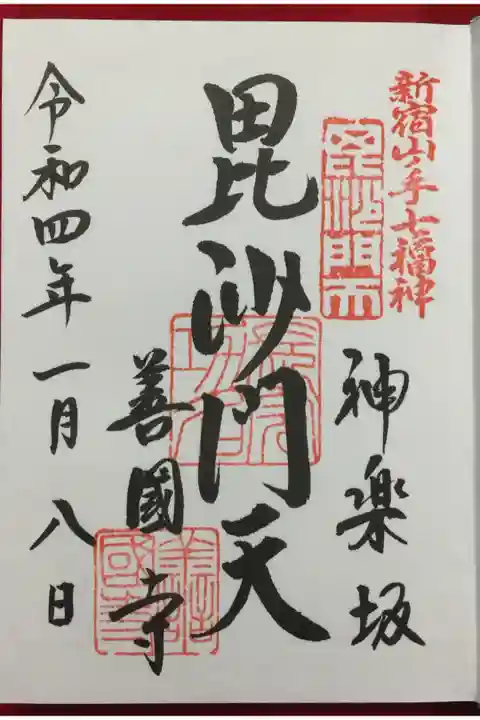 新宿山ノ手七福神
毘沙門天
神楽坂
毘沙門天
善國寺
令和四年一月八日